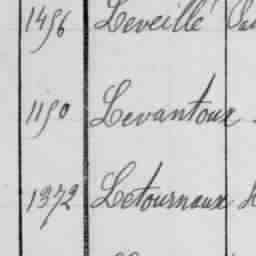 1456 Leveillé
1150 Levantoux
1372 Letournaux